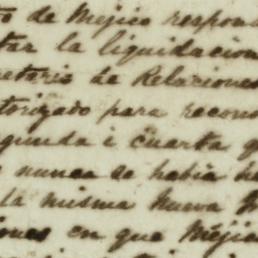 to de Mejico respond
tar la liquidacion
cretario de Relaciones
torizado para recono
egunda i cuarta q
nunca se habia he
la misma Nueva
iones en que Mejic